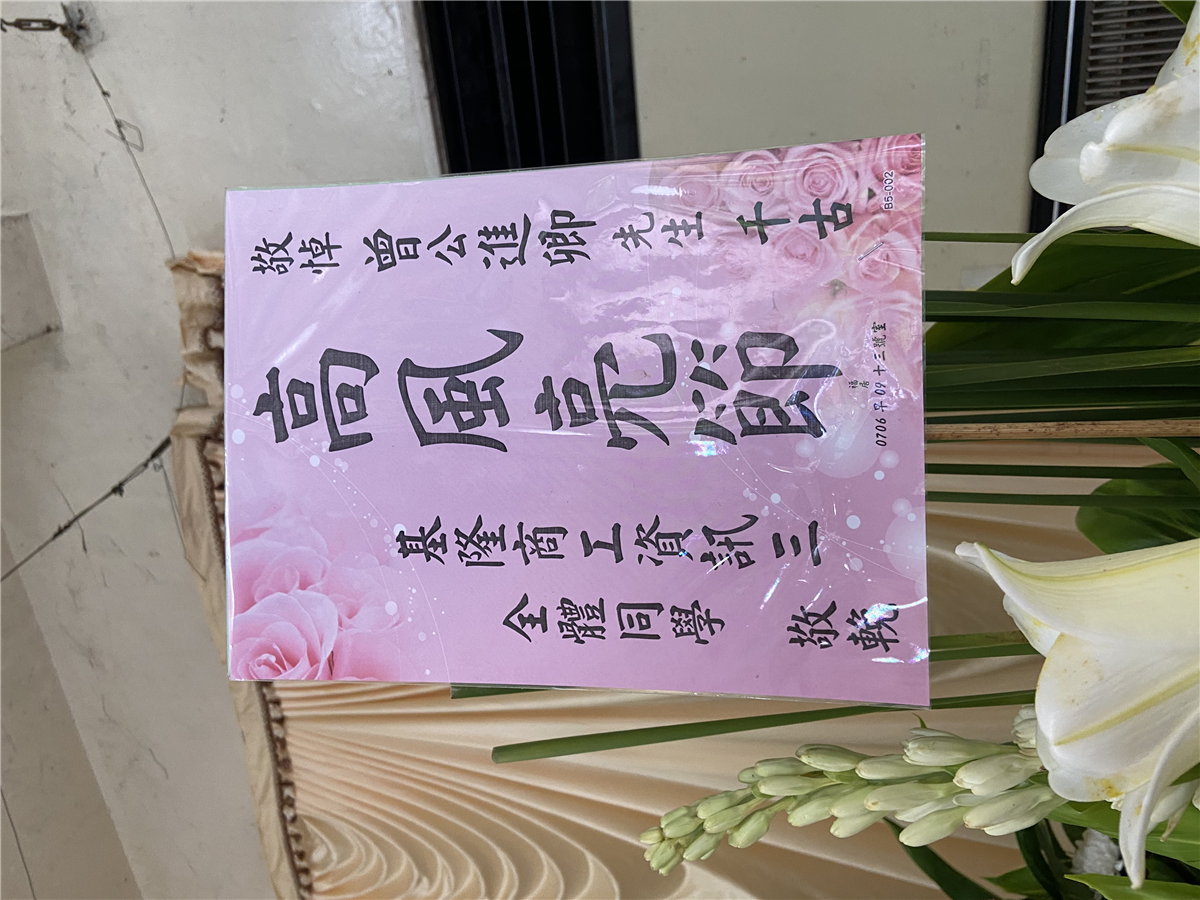 敬悼 曾公進卿 先生 千古
高風亮節
基隆商工資訊三
全體同學 敬輓
福居
0706 早 09 十三號室
B5-002